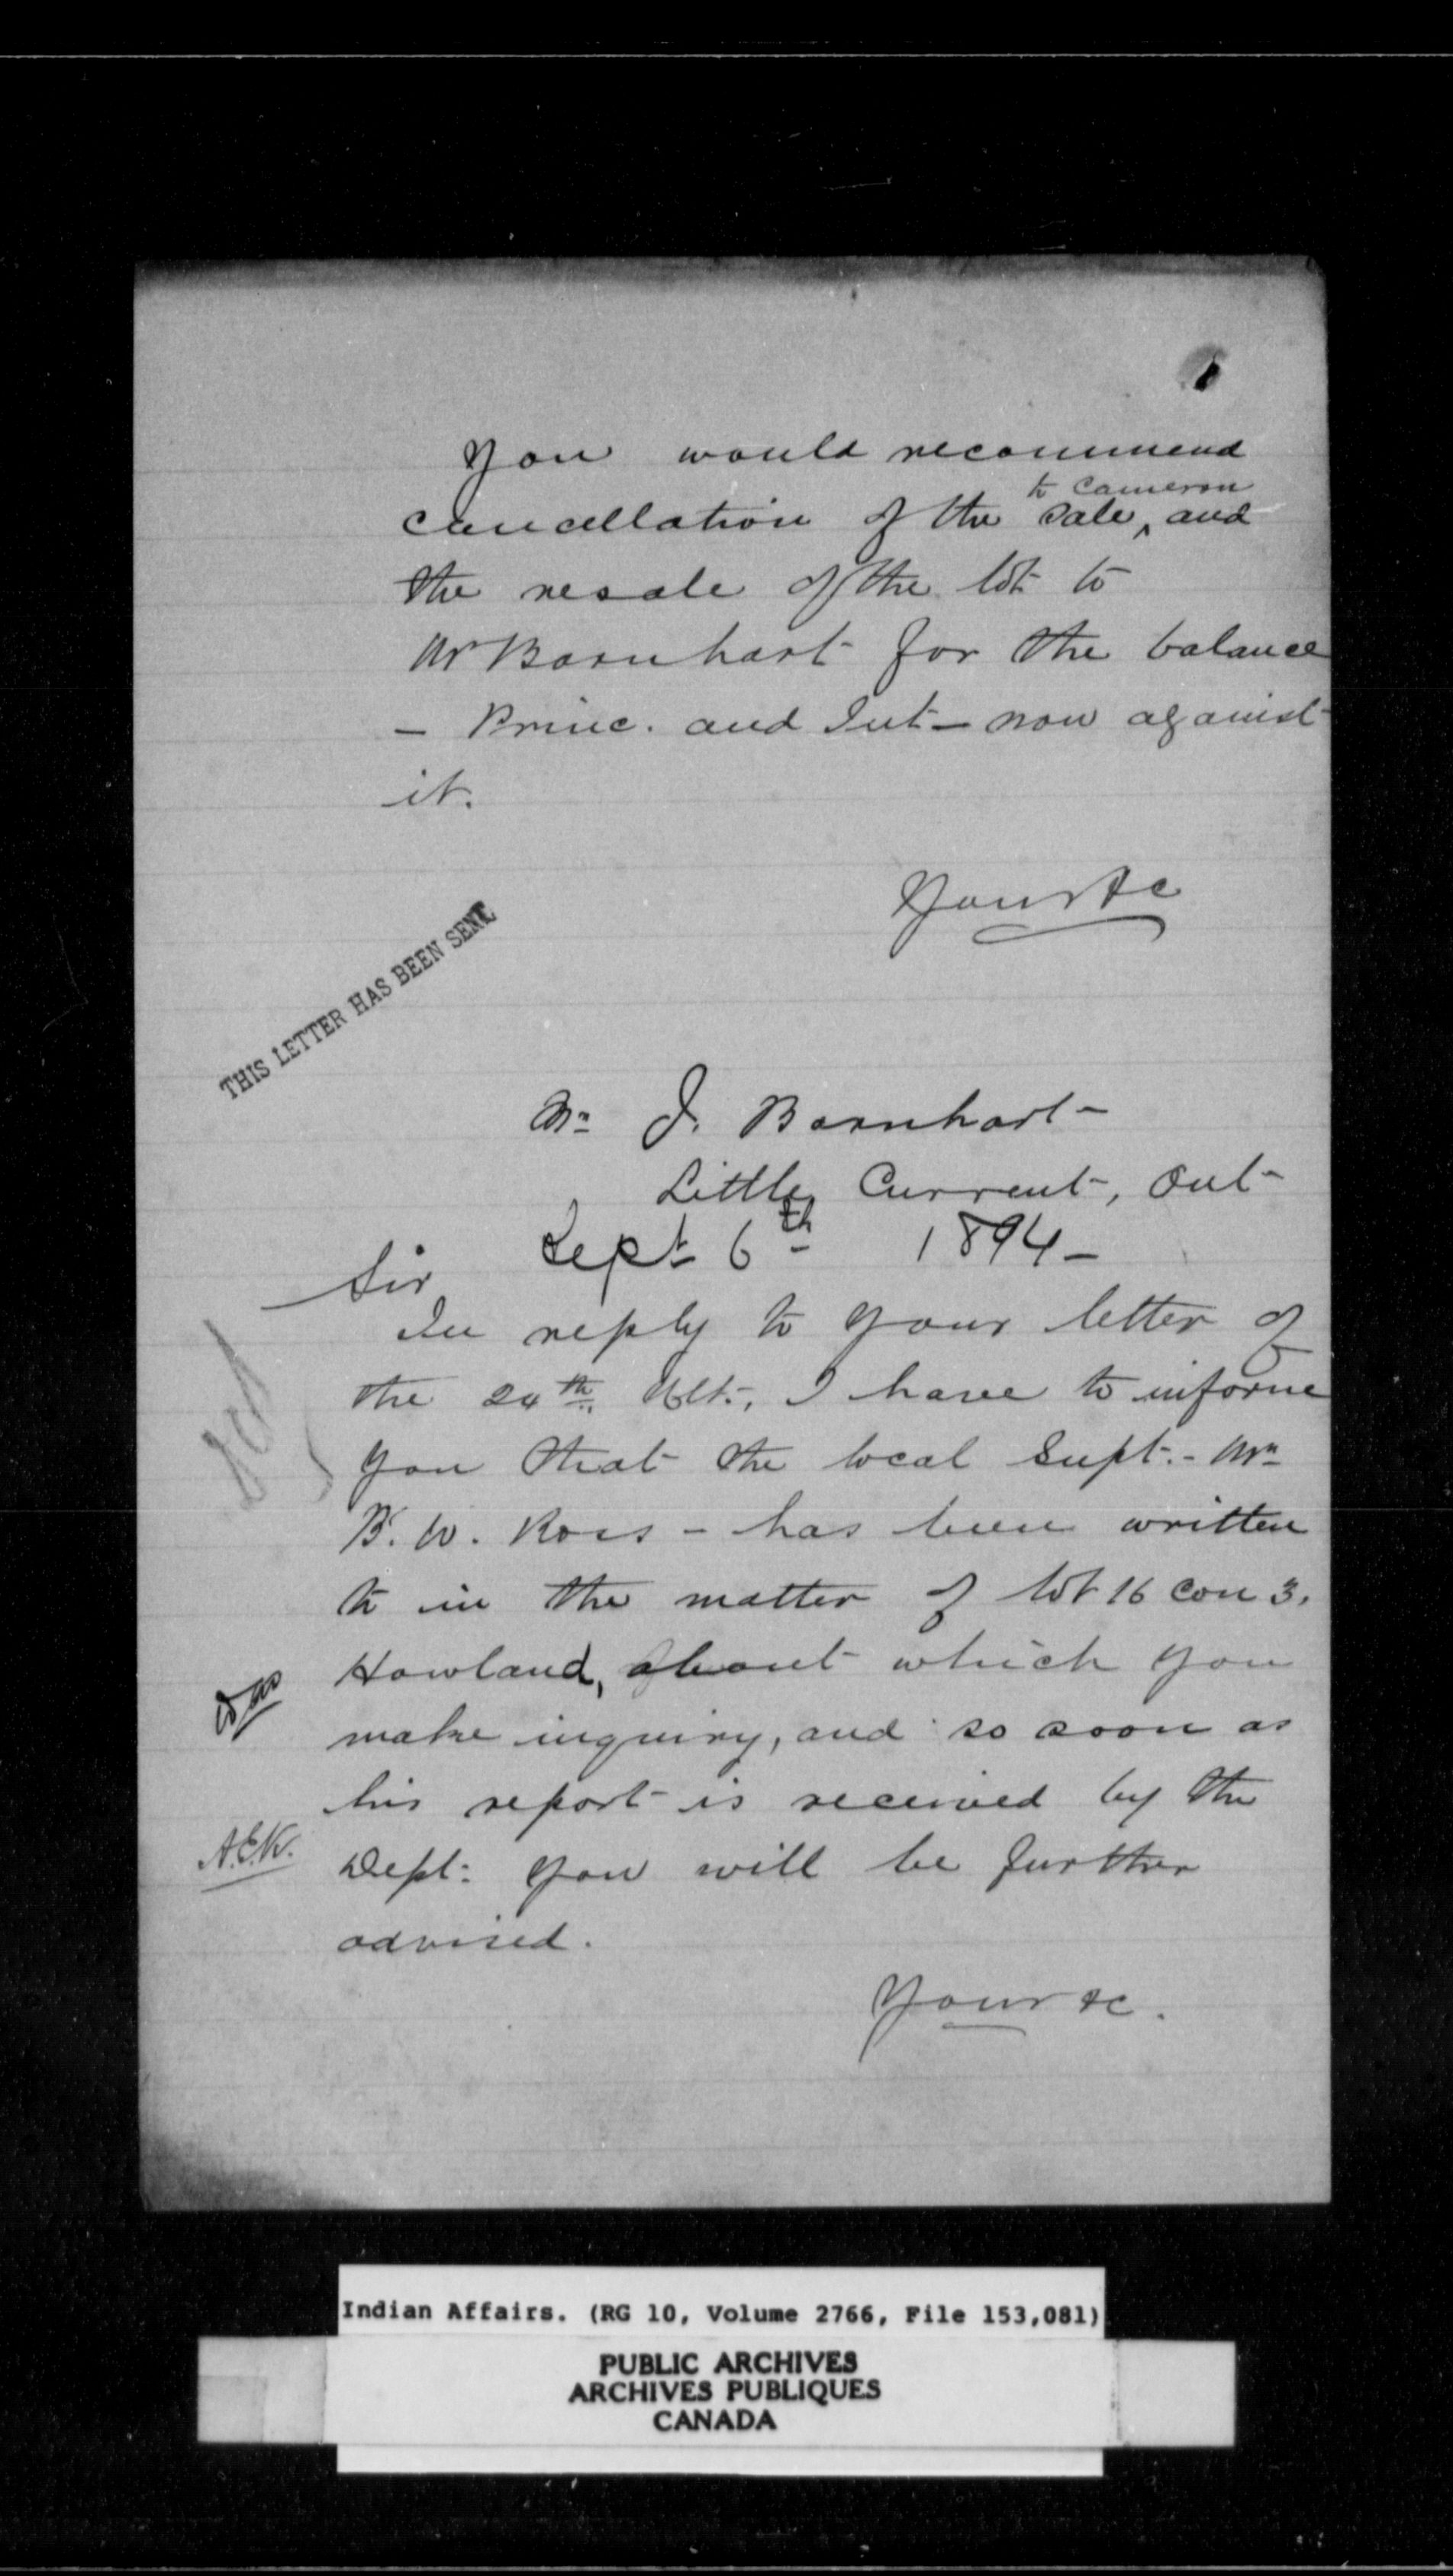 You would recommend
cancellation of the sale ^ to Cameron and
the resale of the lot to
Mr Barnhart for the balance
- Princ. and Int - now against
it.
Yours &c
THIS LETTER HAS BEEN SENT
Mr. J. Barnhart -
Little Current, Ont -
Sept 6th 1894 -
Sir
In reply to your letter of
the 24th Ult., I have to inform
you that the local Supt. - Mr
B. W. Ross - has been written
to in the matter of lot 16 Con 3.
Howland, about which you
make inquiry, and so soon as
his report is received by the
A.E.K.
Dept: you will be further
advised.
Yours &c.
Indian Affairs. (RG 10, Volume 2766, File 153,081)
PUBLIC ARCHIVES
ARCHIVES PUBLIQUES
CANADA